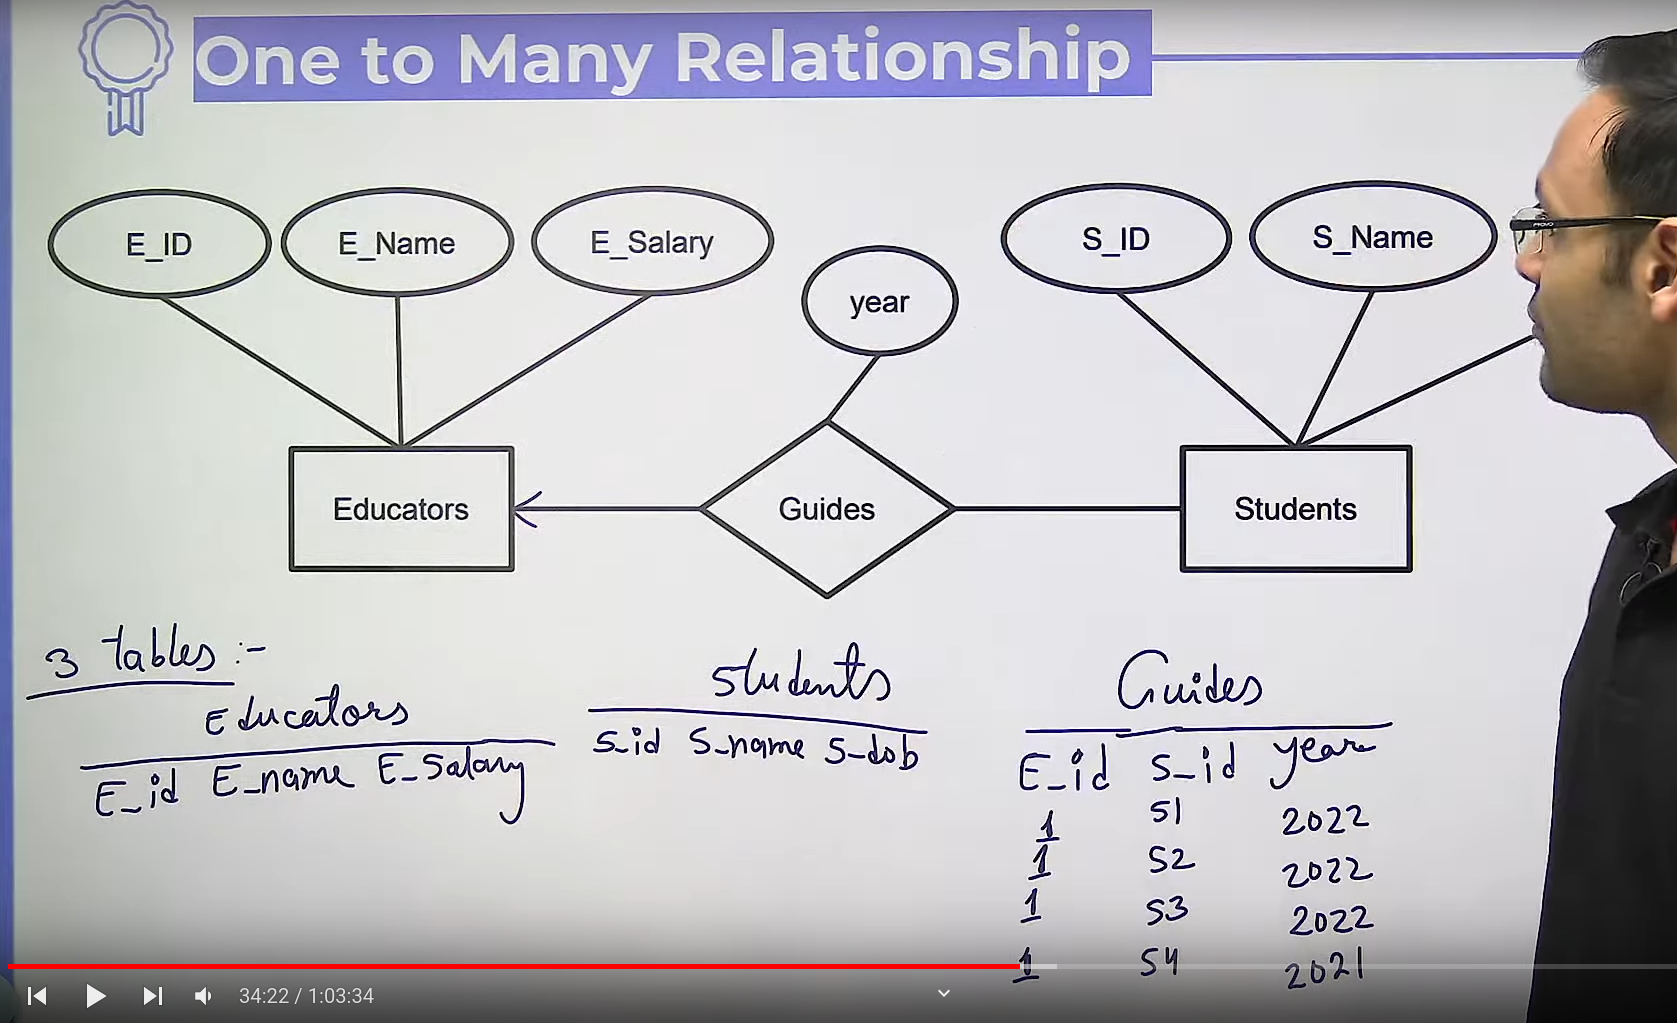 One to Many Relationship
E_ID E_Name E_Salary year S_ID S_Name
Educators Guides Students
3 tables :-
Educators
E_id E_name E_Salary
Students
S_id S_name S_dob
Guides
E_id S_id year
1 S1 2022
1 S2 2022
1 S3 2022
1 S4 2021
34:22 / 1:03:34